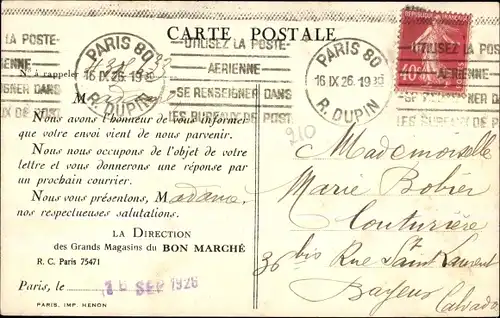 CARTE POSTALE
LA POSTE-
-UTILISEZ LA POSTE-
-UTILISEZ LA POSTE-
AERIENNE
AERIENNE
SE RENSEIGNER DANS
LES BUREAUX DE POSTE
PARIS 80
16 IX 26
R. DUPIN
PARIS 80
16 IX 26
R. DUPIN
40
No à rappeler
210
M
Nous avons l'honneur de vous informer
que votre envoi vient de nous parvenir.
Nous nous occupons de l'objet de votre
lettre et vous donnerons une réponse par
un prochain courrier.
Nous vous présentons, Madame,
nos respectueuses salutations.
LA DIRECTION
des Grands Magasins du BON MARCHÉ
R. C. Paris 75471
Paris, le 16 SEP 1926
PARIS, IMP. HENON
Mademoiselle
Marie Bobier
Couturière
36 bis Rue Saint Laurent
Bayeux
Calvados